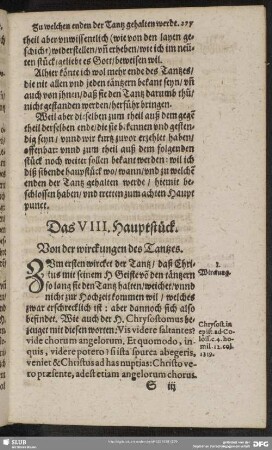 Zu welchen enden der Tantz gehalten werde. 277
theil aber vnwissentlich (wie von den layen ge-
schicht) widerstellen/ vñ erheben/ wie ich im neü-
ten stück/ geliebt es Gott/ beweisen wil.
Alhier könte ich wol mehr ende des Tantzes/
die nit allen vnd jeden täntzern bekant seyn/ vñ
auch von jhnen/ daß sie den Tantz darumb thü/
nicht gestanden werden/ herfür bringen.
Weil aber diselben zum theil auß dem gegẽ
theil derselben ende/ die sie bekennen vnd gesten-
dig seyn/ vnnd wir kurtz zuvor erzelet haben/
offenbar: vnnd zum theil auß dem folgenden
stück noch weiter sollen bekant werden: wil ich
diß sibende haupstück wo/ wann/ vnd zu welchẽ
enden der Tantz gehalten werde/ hiemit be-
schlossen haben/ vnd tretten zum achten Haupt
punct.
Das VIII. Hauptstück.
Von der wirckungen des Tantzes.
ZVm ersten wircket der Tantz/ daß Chri-
stus mit seinem H. Geiste võ den täntzern
so lang sie den Tantz halten/ weichet/ vnnd
nicht zur Hochzeit kommen wil/ welches
zwar erschrecklich ist: aber dannoch sich also
befindet. Wie auch der H. Chrysostomus be-
zeuget mit diesen worten: Vis videre saltantes?
vide chorum angelorum, Et quomodo, in-
quis, videre potero? si ista spurca abegeris,
veniet & Christus ad has nuptias: Christo ve-
ro præsente, adest etiam angelorum chorus.
S iij
1.
Wirckung.
Chrysost. in
epist. ad Co-
loss. c. 4. ho-
mil. 12. col.
1219.
SLUB